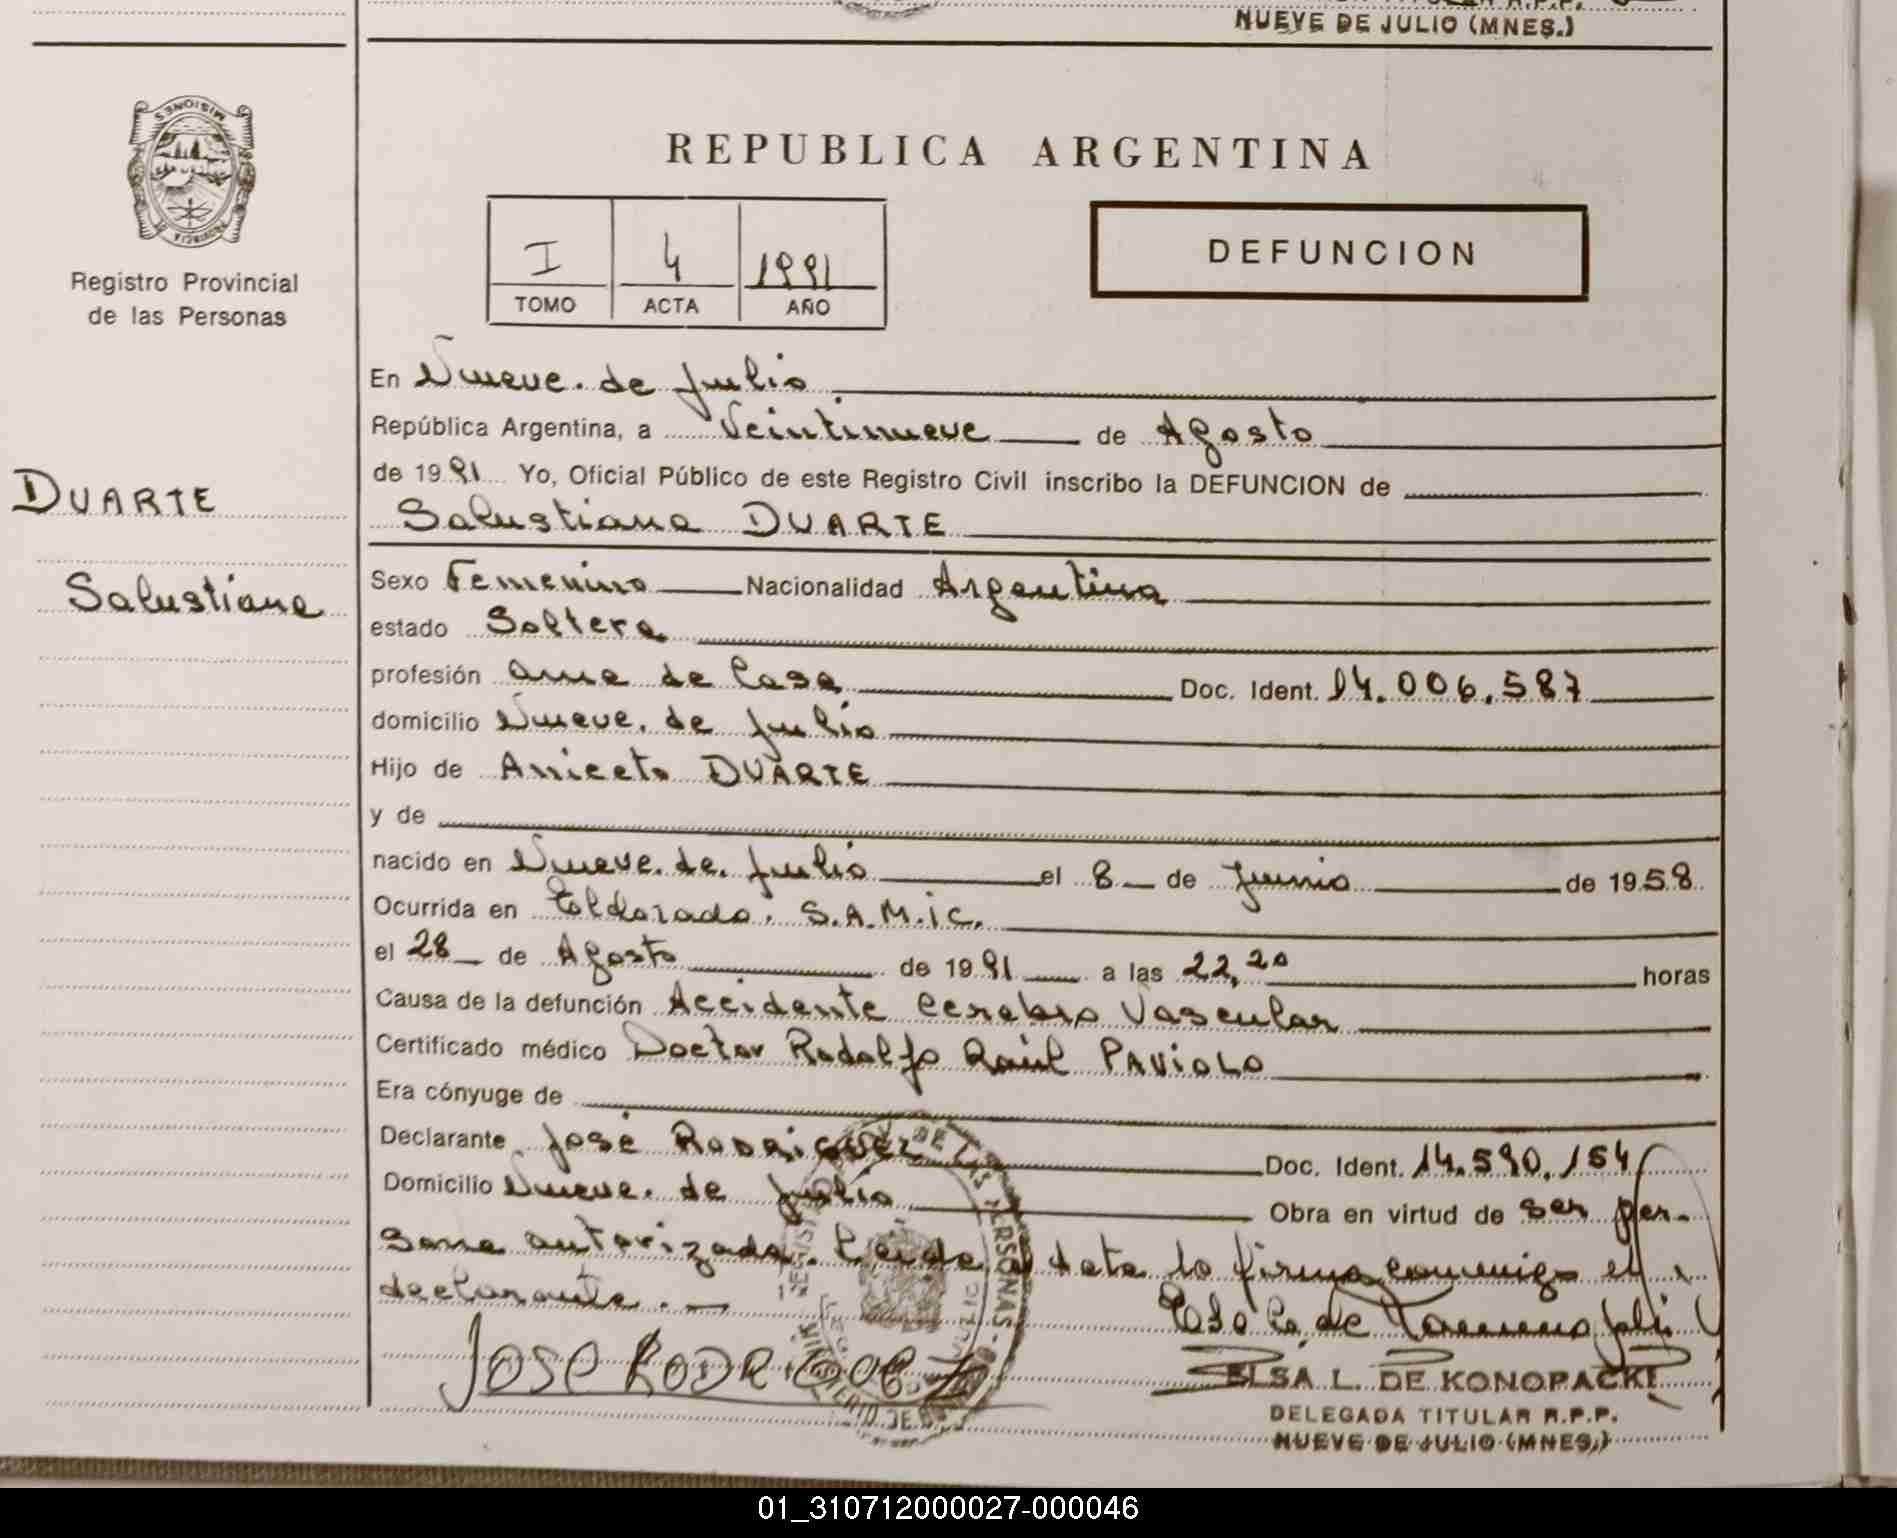 NUEVE DE JULIO (MNES.)
MISIONES
PROVINCIA DE
Registro Provincial
de las Personas
DUARTE
Salustiana
REPUBLICA ARGENTINA
I 4 1991
TOMO ACTA AÑO
DEFUNCION
En Nueve de Julio
República Argentina, a Veintinueve de Agosto
de 1991 Yo, Oficial Público de este Registro Civil inscribo la DEFUNCION de
Salustiana DUARTE
Sexo Femenino Nacionalidad Argentina
estado Soltera
profesión Ama de Casa Doc. Ident. 14.006.587
domicilio Nueve de Julio
Hijo de Aniceto DUARTE
y de
nacido en Nueve de Julio el 8 de Junio de 1958
Ocurrida en Eldorado. S.A.M.ic.
el 28 de Agosto de 1991 a las 22,20 horas
Causa de la defunción Accidente Cerebro Vascular
Certificado médico Doctor Rodolfo Raúl PAVIOLO
Era cónyuge de
Declarante José RODRIGUEZ Doc. Ident. 14.590.154
Domicilio Nueve de Julio Obra en virtud de ser per-
sona autorizada. Leida el acta la firma conmigo el
declarante.-
JOSE RODRIGUEZ
ELSA L. DE KONOPACKI
DELEGADA TITULAR R.P.P.
NUEVE DE JULIO (MNES.)
01_310712000027-000046